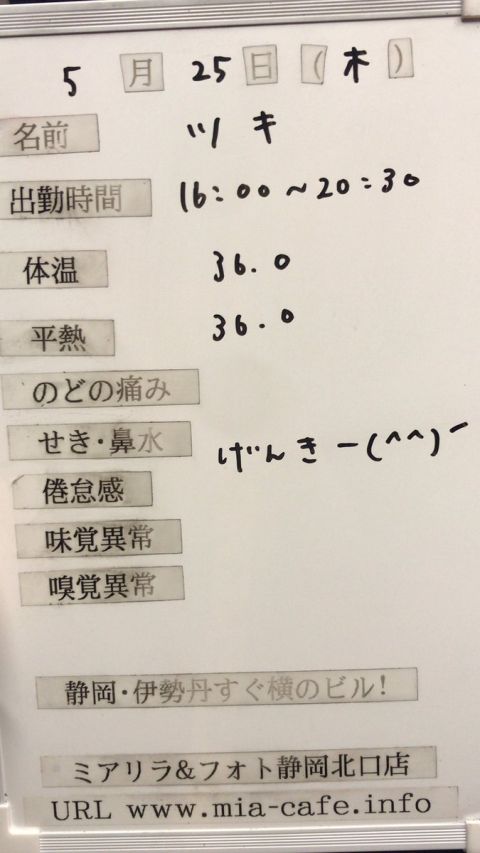 5月25日(木)
名前 ツキ
出勤時間 16:00~20:30
体温 36.0
平熱 36.0
のどの痛み
せき・鼻水 げんきー(^^)
倦怠感
味覚異常
嗅覚異常
静岡・伊勢丹すぐ横のビル!
ミアリラ&フォト静岡北口店
URL www.mia-cafe.info